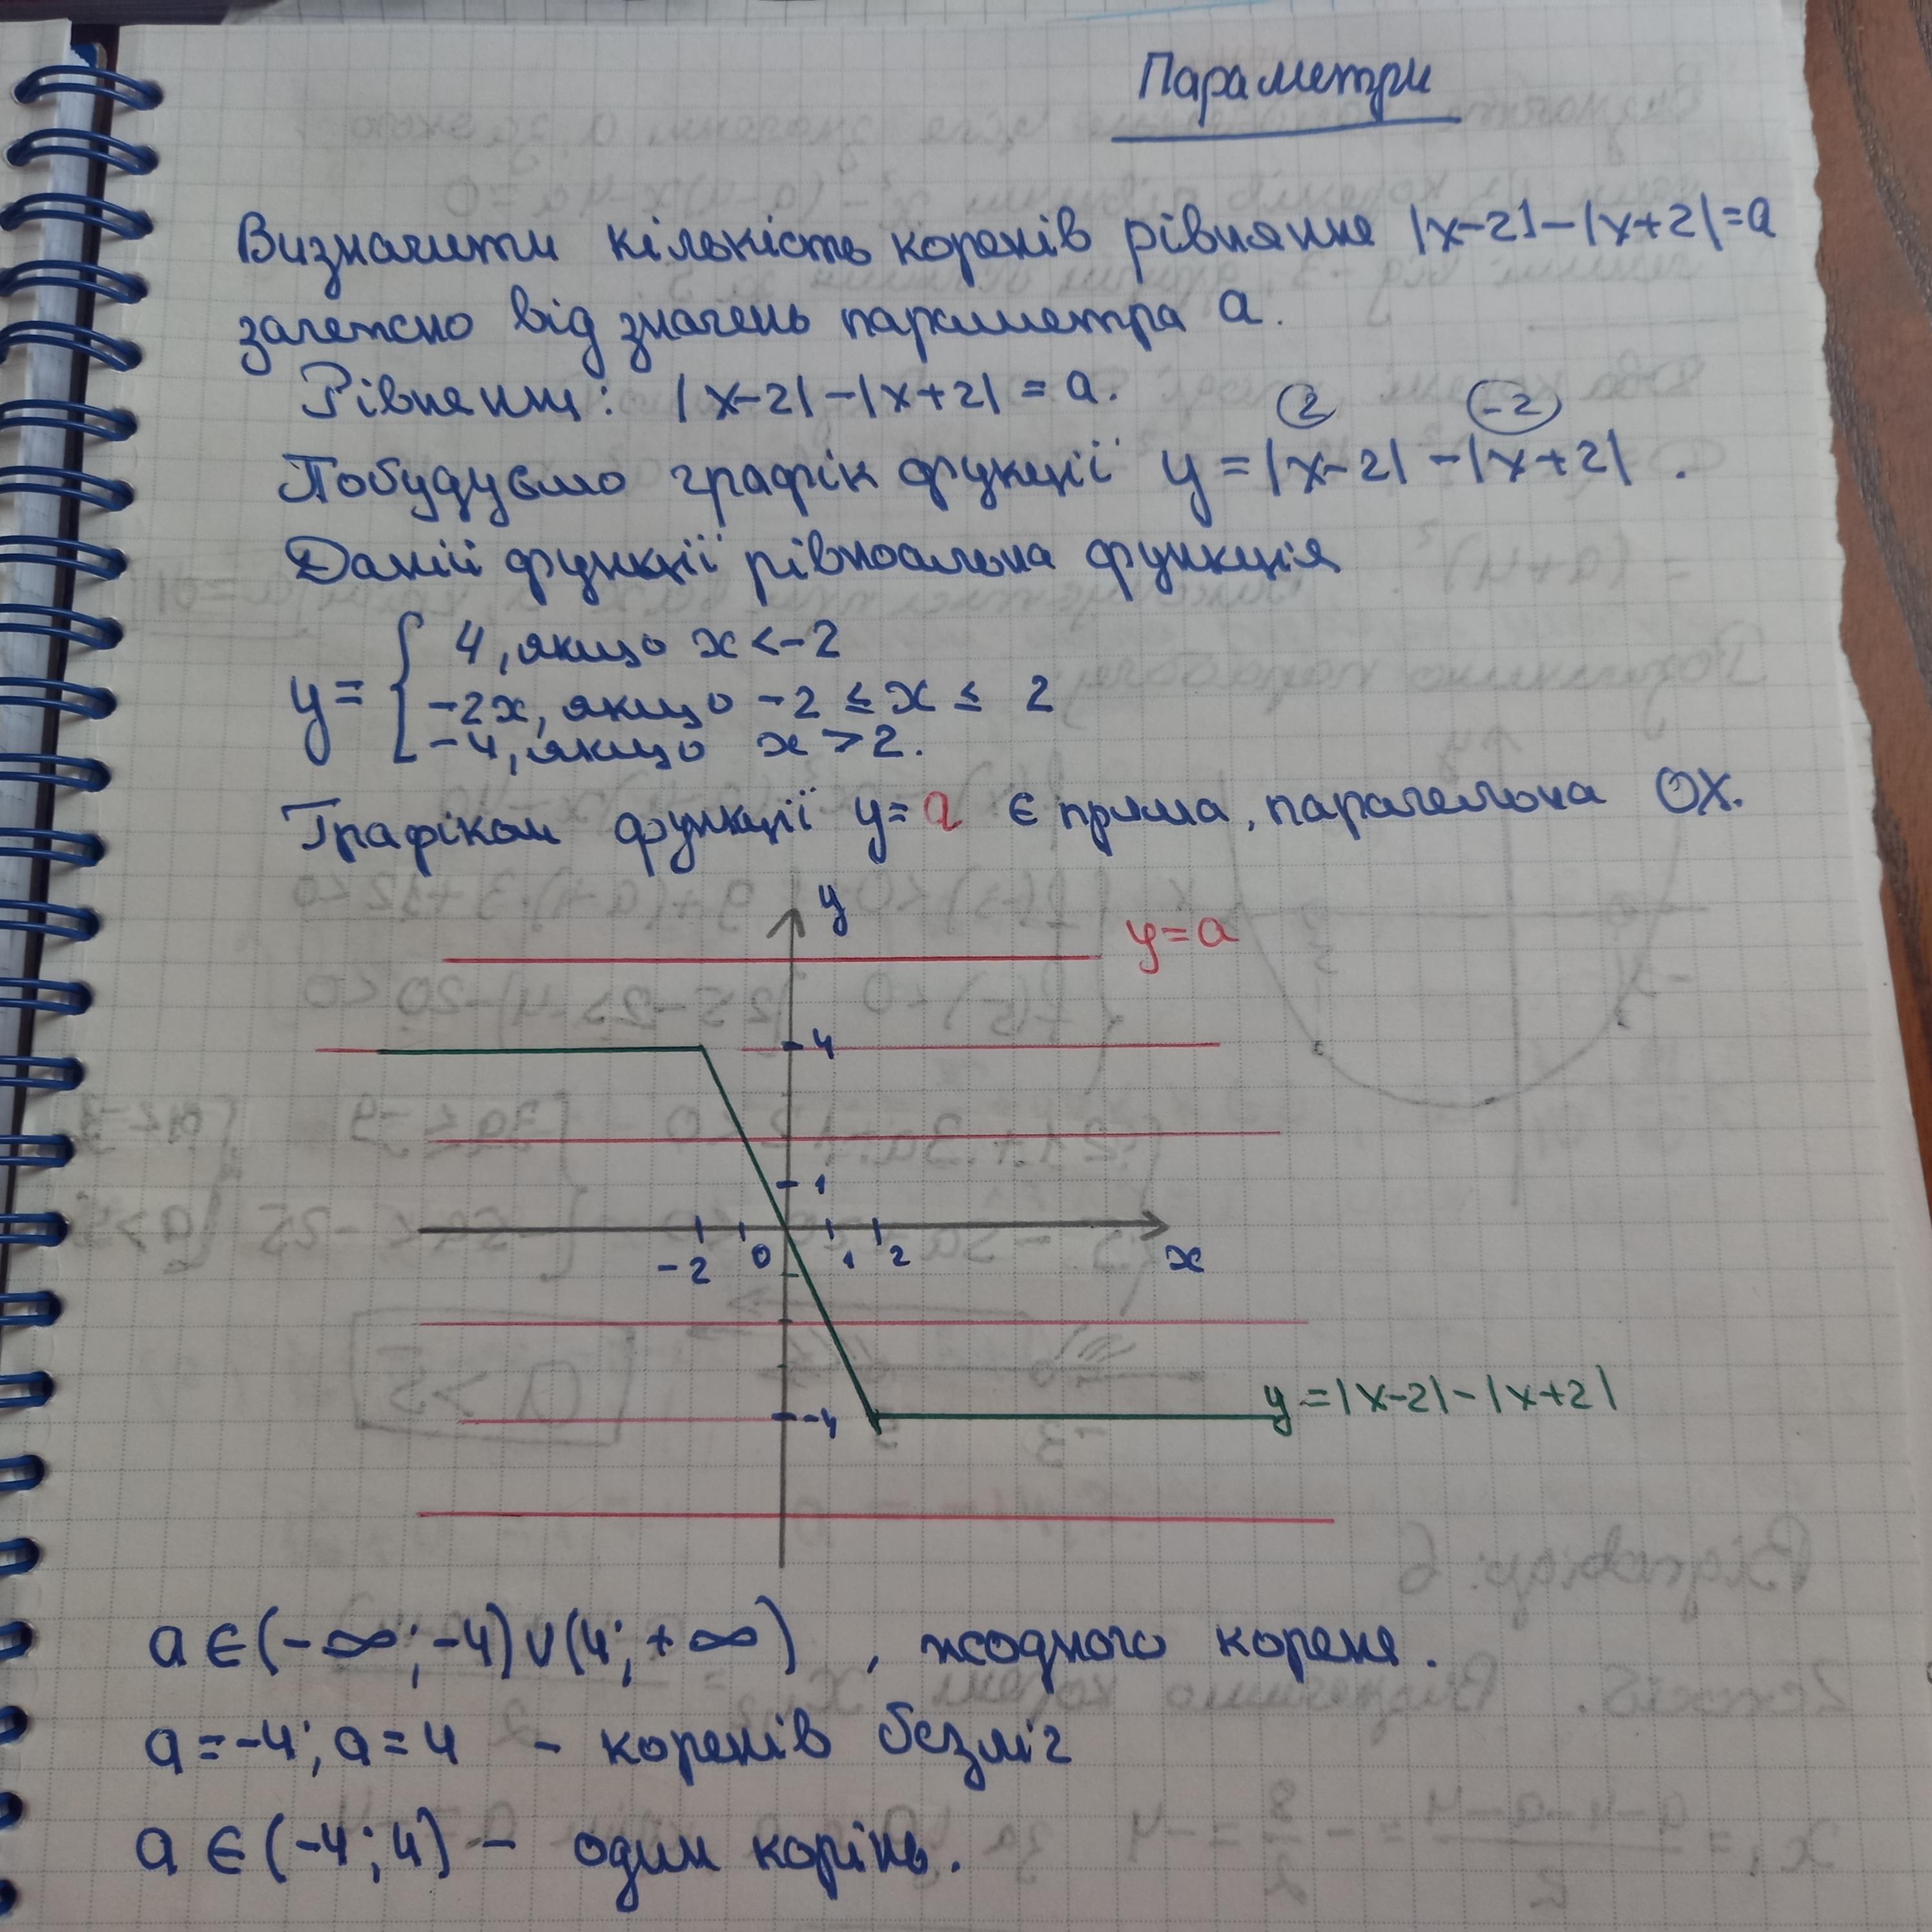 Параметри
Визначити кількість коренів рівняння |x-2|-|x+2|=a
залежно від значень параметра a.
Рівняння: |x-2|-|x+2|=a.
2 -2
Побудуємо графік функції y=|x-2|-|x+2|.
Даній функції рівносильна функція
4, якщо x<-2
y= { -2x, якщо -2 ≤ x ≤ 2
-4, якщо x>2.
Графіком функції y=a є пряма, паралельна OX.
y
y=a
4
1
-2 0 1 2 x
-4
y=|x-2|-|x+2|
a∈(-∞;-4)∪(4;+∞) , жодного кореня.
a=-4; a=4 - коренів безліч
a∈(-4;4) - один корінь.